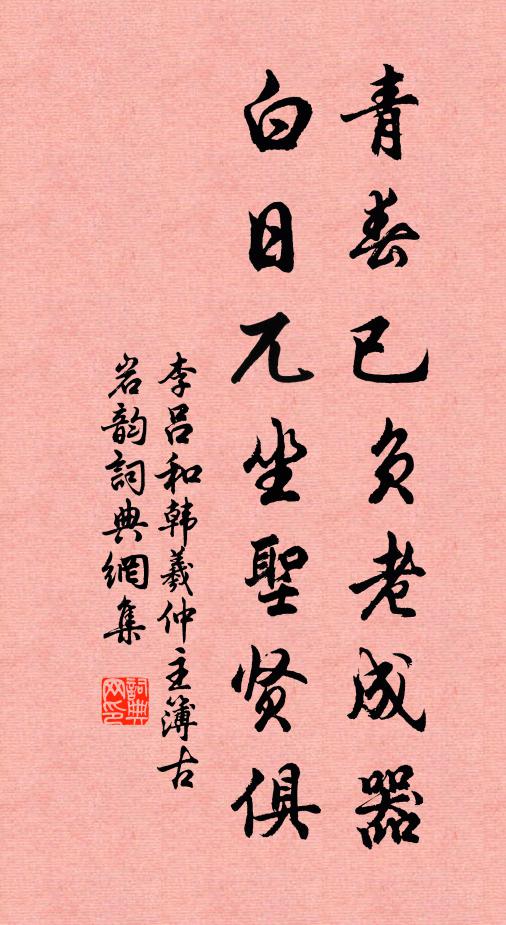 青春已负老成器
白日兀坐聖贤俱
李吕和韩羲仲主簿古
岩韵詞典網集
詞典网印